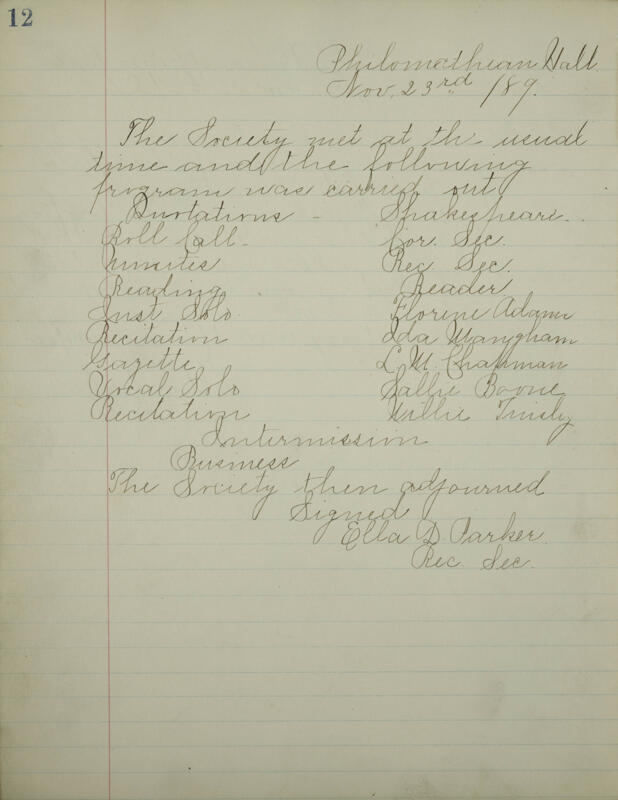 12
Philomathean Hall
Nov. 23rd /89.
The Society met at th usual
time and the following
program was carried out
Quotations - Shakespeare.
Roll Call. Cor. Sec.
Minutes Rec. Sec.
Reading. Reader
Inst Solo Florine Adams
Recitation Ida Mangham
Gazette L. M. Chapman
Vocal Solo Sallie Boone
Recitation Willie Tinsly
Intermission
Business
The Society then adjourned
Signed
Ella D. Parker.
Rec. Sec.